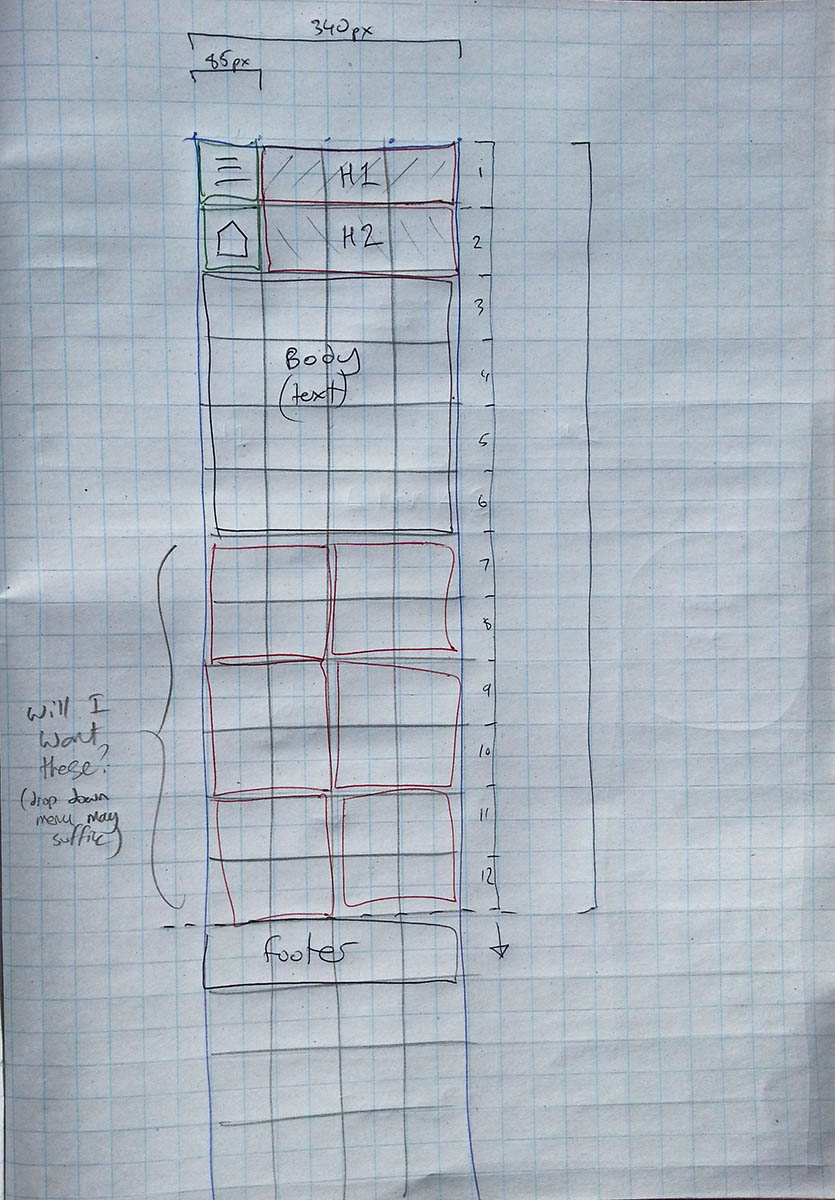 340px
85px
H1
1
H2
2
3
Body
(text)
4
5
6
7
8
9
10
11
12
Will I
want
these?
(drop down
menu may
suffice)
footer